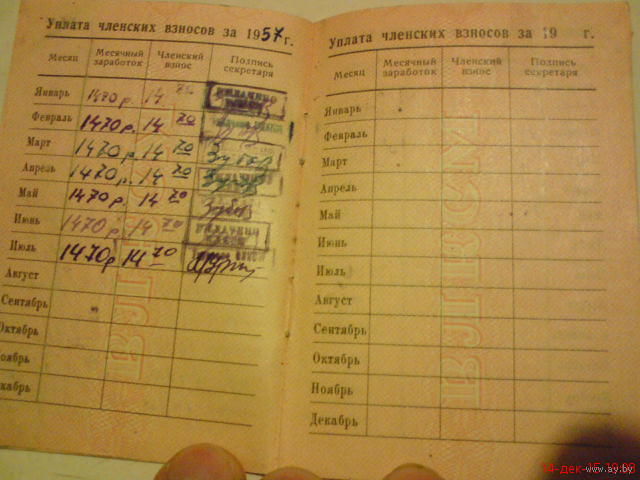 Уплата членских взносов за 1957 г.
Месяц Месячный заработок Членский взнос Подпись секретаря
Январь 1470 р. 14 70 УПЛАЧЕНО
Февраль 1470 р. 14 70
Март 1470 р. 14 70
Апрель 1470 р. 14 70
Май 1470 р. 14 70
Июнь 1470 р. 14 70
Июль 1470 р 14 70
Август
Сентябрь
Октябрь
Ноябрь
кабрь
Уплата членских взносов за 19 г.
Месяц Месячный заработок Членский взнос Подпись секретаря
Январь
Февраль
Март
Апрель
Май
Июнь
Июль
Август
Сентябрь
Октябрь
Ноябрь
Декабрь
www.ay.by